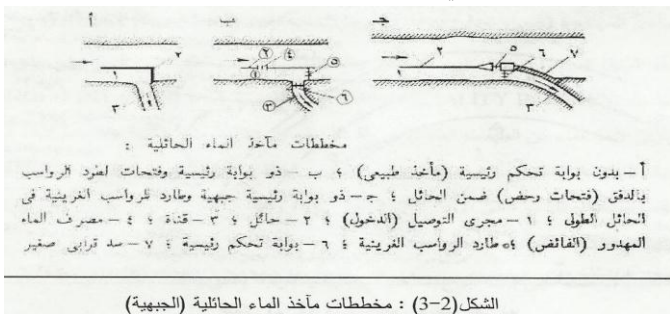 أ ب جـ
٢ ١ ٣
٢ ٤ ١ ٥ ٣ ٦
٢ ٥ ٦ ٧ ١ ٣
مخططات مآخذ الماء الحائلية :
أ – بدون بوابة تحكم رئيسية (مأخذ طبيعي) ؛ ب – ذو بوابة رئيسية وفتحات لطرد الرواسب
بالدفق (فتحات رحض) ضمن الحائل ؛ جـ – ذو بوابة رئيسية جبهية وطارد للرواسب الغرينية في
الحائل الطولي ؛ ١ – مجرى التوصيل (الدخول) ؛ ٢ – حائل ؛ ٣ – قناة ؛ ٤ – مصرف الماء
المهدور (الفائض) ؛ ٥ طارد الرواسب الغرينية ؛ ٦ – بوابة تحكم رئيسية ؛ ٧ – سد ترابي صغير
الشكل(2-3) : مخططات مآخذ الماء الحائلية (الجبهية)